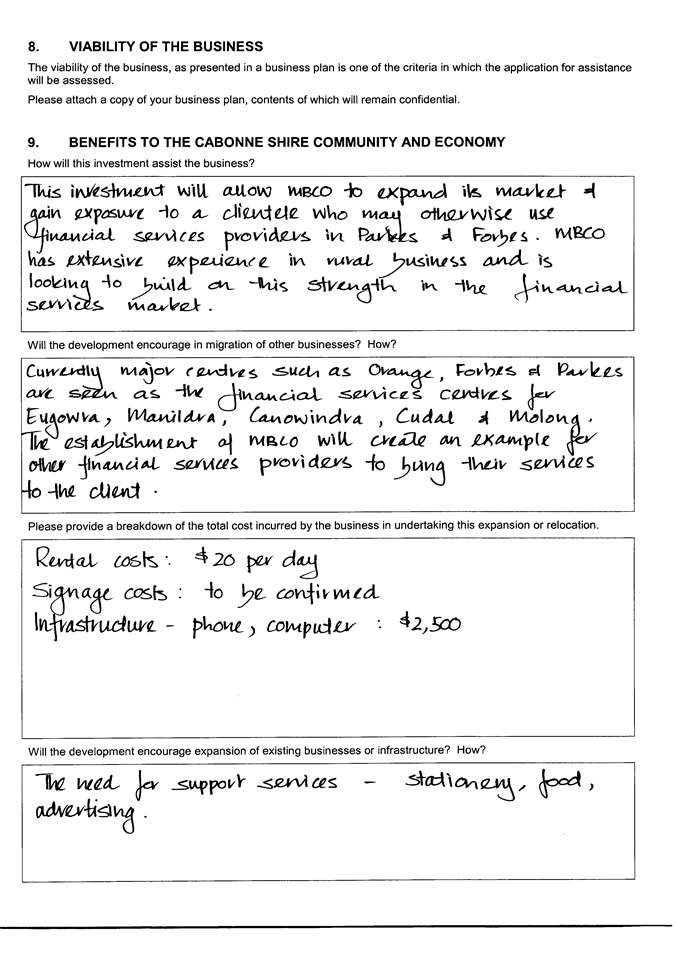 8. VIABILITY OF THE BUSINESS
The viability of the business, as presented in a business plan is one of the criteria in which the application for assistance
will be assessed.
Please attach a copy of your business plan, contents of which will remain confidential.
9. BENEFITS TO THE CABONNE SHIRE COMMUNITY AND ECONOMY
How will this investment assist the business?
This investment will allow MBCO to expand its market &
gain exposure to a clientele who may otherwise use
financial services providers in Parkes & Forbes. MBCO
has extensive experience in rural business and is
looking to build on this strength in the financial
services market.
Will the development encourage in migration of other businesses? How?
Currently major centres such as Orange, Forbes & Parkes
are seen as the financial services centres for
Eugowra, Manildra, Canowindra, Cudal & Molong.
The establishment of MBCO will create an example for
other financial services providers to bring their services
to the client.
Please provide a breakdown of the total cost incurred by the business in undertaking this expansion or relocation.
Rental costs: $20 per day
Signage costs: to be confirmed
Infrastructure - phone, computer : $2,500
Will the development encourage expansion of existing businesses or infrastructure? How?
The need for support services - stationery, food,
advertising.